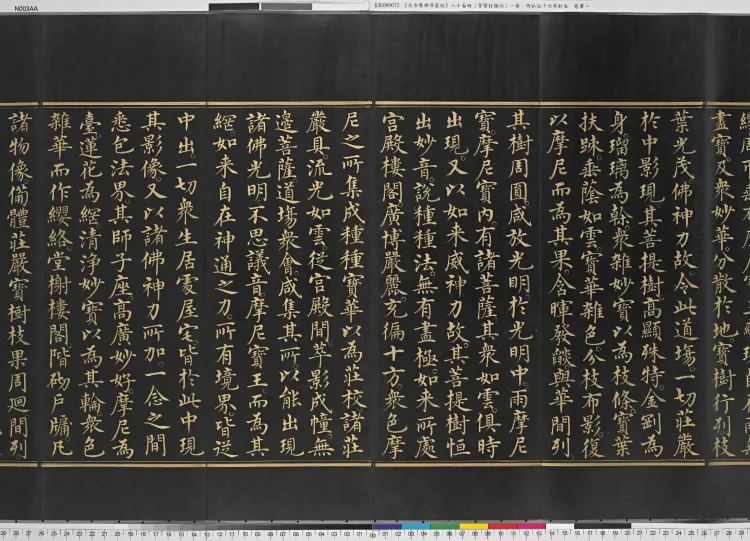 盡寶及衆妙華分散於地寶樹行列枝
葉光茂佛神力故令此道場一切莊嚴
於中影現其菩提樹高顯殊特金剛為
身瑠璃為幹衆雜妙寶以為枝條寶葉
扶踈垂蔭如雲寶華雜色分枝布影復
以摩尼而為其果含暉發燄與華間列
其樹周圓咸放光明於光明中雨摩尼
寶摩尼寶內有諸菩薩其衆如雲俱時
出現又以如来威神力故其菩提樹恒
出妙音說種種法無有盡極如来所處
宮殿樓閣廣博嚴麗充徧十方衆色摩
尼之所集成種種寶華以為莊校諸莊
嚴具流光如雲従宮殿間萃影成幢無
邊菩薩道場衆會咸集其所以能出現
諸佛光明不思議音摩尼寶王而為其
網如来自在神通之力所有境界皆従
中出一切衆生居處屋宅皆於此中現
其影像又以諸佛神力所加一念之間
悉包法界其師子座高廣妙好摩尼為
臺蓮花為網清淨妙寶以為其輪衆色
雜華而作纓絡堂榭樓閣階砌戶牖凡
諸物像備體莊嚴寶樹枝果周迴間列
N003AA